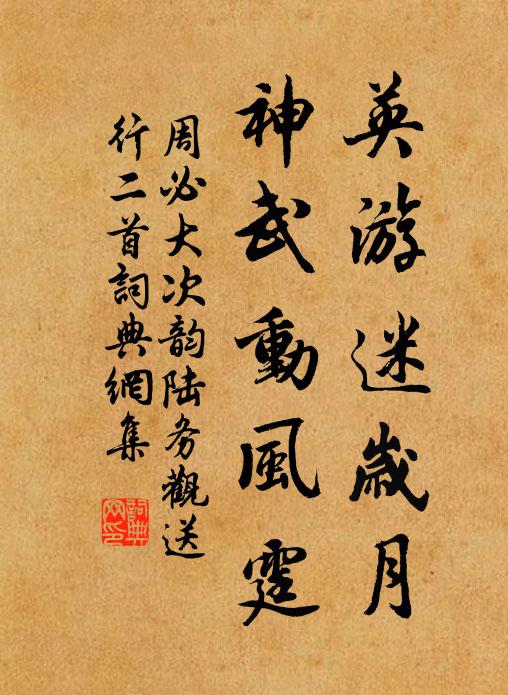 英游迷歲月
神武動風霆
周必大次韵陆务觀送
行二首詞典網集
詞典網印